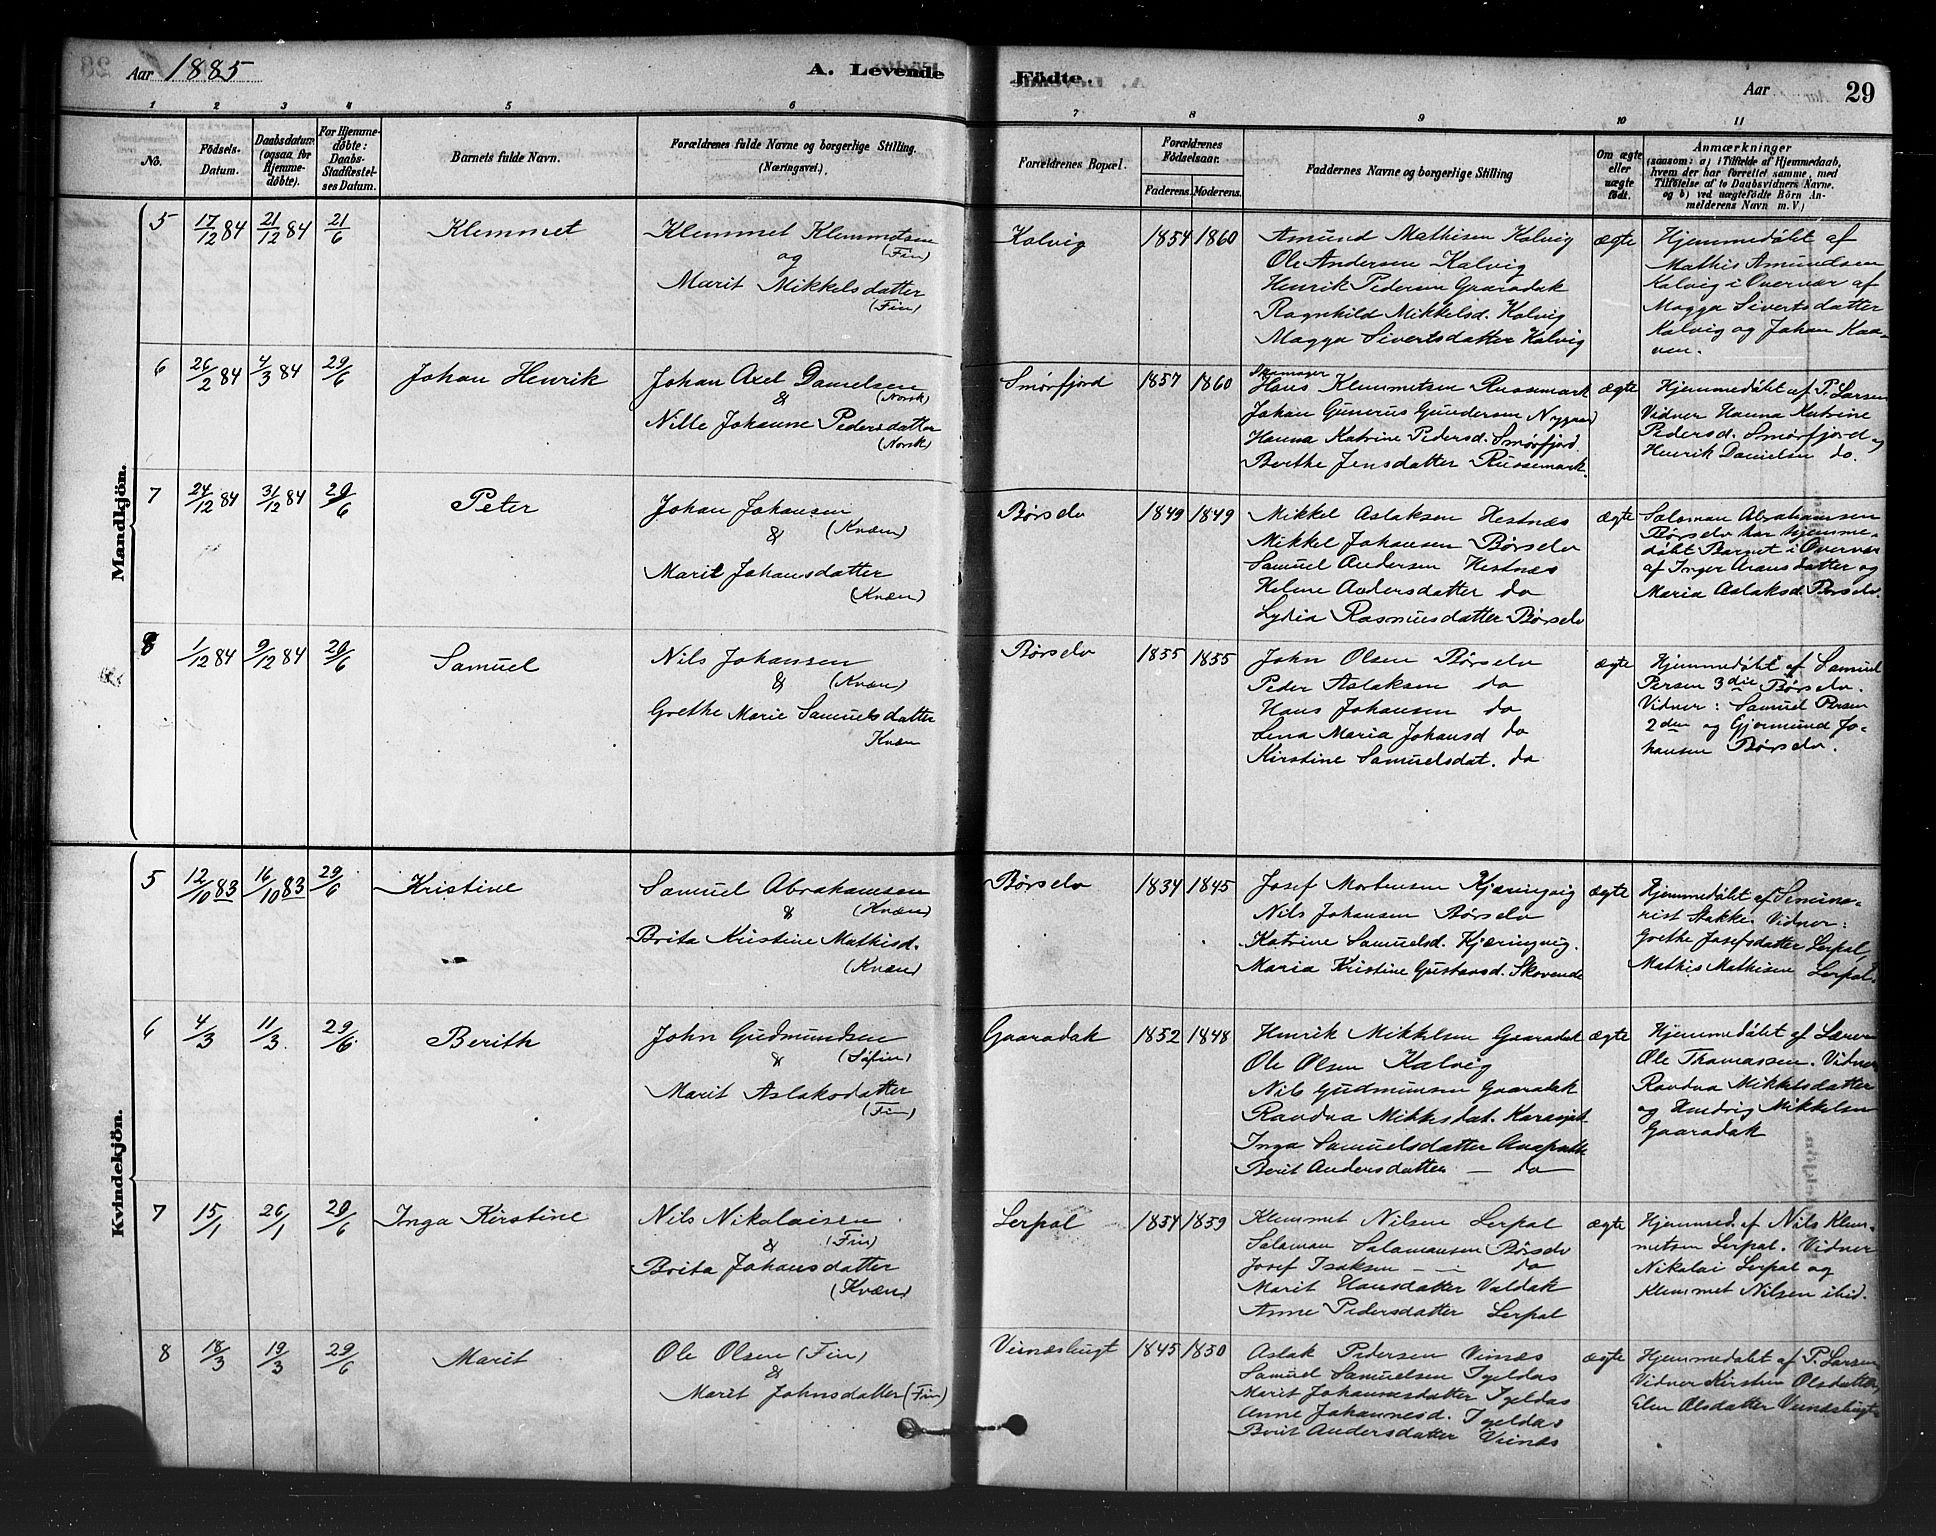 Aar 1885
A. Levende
Födte.
Aar
29
1
2
3
4
5
6
7
8
9
10
11
No.
Födsels-
Datum.
Daabsdatum
(ogsaa for
Hjemme-
døbte).
For Hjemme-
døbte:
Daabs-
Stadfæstel-
ses Datum.
Barnets fulde Navn.
Forældrenes fulde Navne og borgerlige Stilling
(Næringsvei).
Forældrenes Bopæl.
Forældrenes
Födselsaar.
Faderens.
Moderens.
Faddernes Navne og borgerlige Stilling
Om ægte
eller
uægte
født.
Anmærkninger
(saasom: a) i Tilfælde af Hjemmedaab,
hvem der har forrettet samme, med
Tilföielse af to Daabsvidners Navne.
og b) ved uægtefödte Börn An-
melderens Navn m. V.)
Mandkjön.
5
17/12 84
21/12 84
21/6
Klemmet
Klemmet Klemmetsen
(Fin)
og
Marit Mikkelsdatter
(Fin)
Kolvig
1854
1860
Amund Mathisen Kolvig
Ole Andersen Kolvig
Henrik Pedersen Gaaradak
Ragnhild Mikkelsd. Kolvig
Magga Sivertsdatter Kolvig
ægte
Hjemmedøbt af
Mathis Amundsen
Kolvig i Overvær af
Magga Sivertsdatter
Kolvig og Johan Kaa-
ven.
6
26/2 84
4/3 84
29/6
Johan Henrik
Johan Axel Danielsen
(Norsk)
&
Nille Johanne Pedersdatter
(Norsk)
Smørfjord
1857
1860
Hans Klemmetsen Russemark
Johan Gunerus Gundersen Nygaard
Hanna Katrine Pedersd. Smørfjord.
Berthe Jensdatter Russemark.
ægte
Hjemmedøbt af P. Larsen
Vidner Hanna Katrine
Pedersd. Smørfjord og
Henrik Danielsen do.
7
24/12 84
31/12 84
29/6
Peter
Johan Johansen
& (Kvæn)
Marit Johansdatter
(Kvæn)
Børselv
1849
1849
Mikkel Aslaksen Hestnæs
Mikkel Johansen Børselv
Samuel Andersen Hestnæs
Helene Andersdatter do
Lydia Rasmusdatter Børselv
ægte
Salomon Abrahamsen
Børselv har hjemme-
døbt Barnet i Overvær
af Inger Aransdatter og
Maria Aslaksd. Børselv.
8
1/12 84
9/12 84
29/6
Samuel
Nils Johansen
& (Kvæn)
Grethe Marie Samuelsdatter
Kvæn
Børselv
1855
1855
John Olsen Børselv
Peder Aslaksen do
Hans Johansen do
Lena Maria Johansd do
Kirstine Samuelsdat. do
ægte
Hjemmedøbt af Samuel
Persen 3die Børselv.
Vidner: Samuel Persen
2den og Gjermund Jo-
hansen Børselv.
Kvindekjön.
5
12/10 83
16/10 83
29/6
Kristine
Samuel Abrahamsen
& (Kvæn)
Brita Kristine Mathisd.
(Kvæn)
Børselv
1834
1845
Josef Mortensen Kjæringvig
Nils Johansen Børselv
Katrine Samuelsd. Kjæringvig.
Maria Kristine Gustavsd. Skovende
ægte
Hjemmedøbt af Semina-
rist Stakke. Vidner:
Grethe Josefsdatter Lerpol,
Mathis Mathisen Lerpol.
6
4/3
11/3
29/6
Berith
John Gudmundsen
& (Søfin)
Marit Aslaksdatter
(Fin)
Gaaradak
1852
1848
Henrik Mikkelsen Gaaradak
Ole Olsen Kolvig
Nils Gudmunsen Gaaradak
Ravdna Mikkelsdat. Karasjok
Inga Samuelsdatter
Berit Andersdatter — do
ægte
Hjemmedøbt af Lærer
Ole Thomassen. Vidner
Ravdna Mikkelsdatter
og Hendrig Mikkelsen
Gaaradak
7
15/1
26/1
29/6
Inga Kirstine
Nils Nikolaisen
& (Fin)
Brita Johansdatter
(Kvæn)
Lerpol
1854
1859
Klemmet Nilsen Lerpol
Salamon Salamonsen Børselv
Josef Isaksen — do
Marit Hansdatter Valdak
Anne Pedersdatter Lerpol
ægte
Hjemmed. af Nils Klem-
metsen Lerpol. Vidner
Nikolai Lerpol og
Klemmet Nilsen ibid.
8
18/3
19/3
29/6
Marit
Ole Olsen (Fin)
&
Marit Johnsdatter (Fin)
Veinæsbugt
1845
1850
Aslak Pedersen Veinæs
Samuel Samuelsen Igeldas
Marit Johannesdatter Igeldas
Anne Johannesd. Igeldas
Berit Andersdatter Veinæs
ægte
Hjemmedøbt af P. Larsen
Vidner Kirsten Olsdatter,
Elen Olsdatter Veinæsbugt